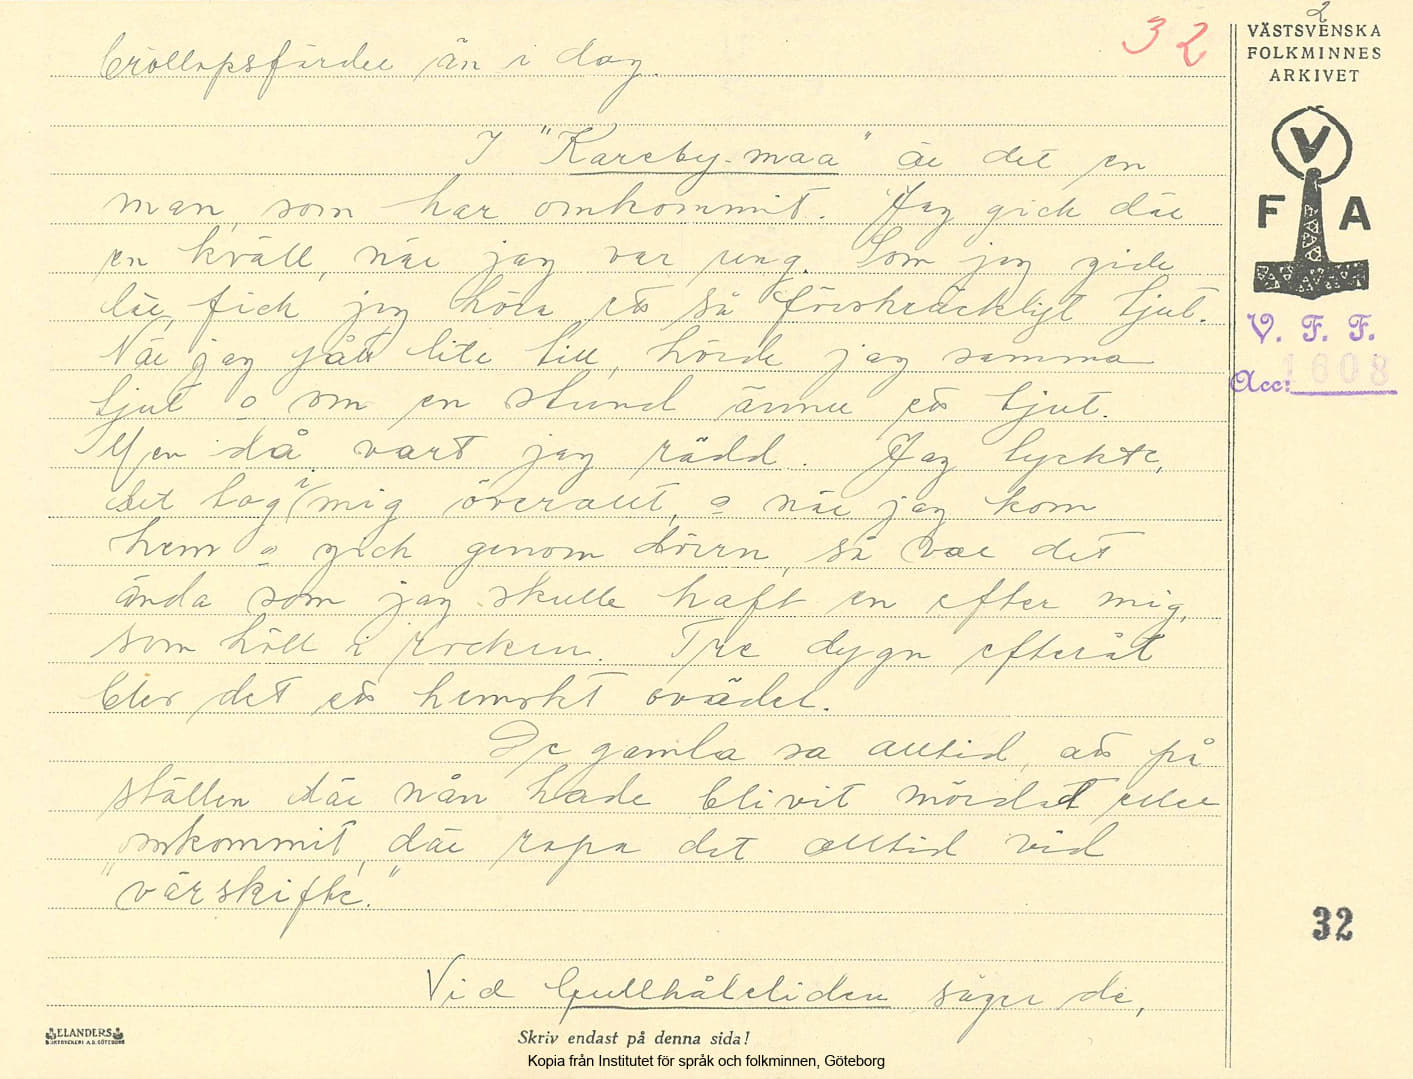 2
32
VÄSTSVENSKA
FOLKMINNES
ARKIVET
V
F A
V. F. F.
Acc: 1608
bröllopsfärder än i dag.
I "Kareby-maa" är det en
man, som har omkommit. Jag gick där
en kväll, när jag var ung. Som jag gick
där, fick jag höra ett så förskräckligt tjut.
När jag gått lite till, hörde jag samma
tjut o om en stund ännu ett tjut.
Men då vart jag rädd. Jag tyckte,
det tog i mig överallt, o när jag kom
hem o gick genom dörrn, så var det
ända som jag skulle haft en efter mig,
som höll i rocken. Tre dygn efteråt
blev det ett hemskt oväder.
De gamla sa alltid, att på
ställen där nån hade blivit mördat eller
omkommit, där ropa det alltid vid
"värskifte."
Vid Gullhålsliden säger de,
32
ELANDERS
BOKTRYCKERI A.B. GÖTEBORG
Skriv endast på denna sida!
Kopia från Institutet för språk och folkminnen, Göteborg